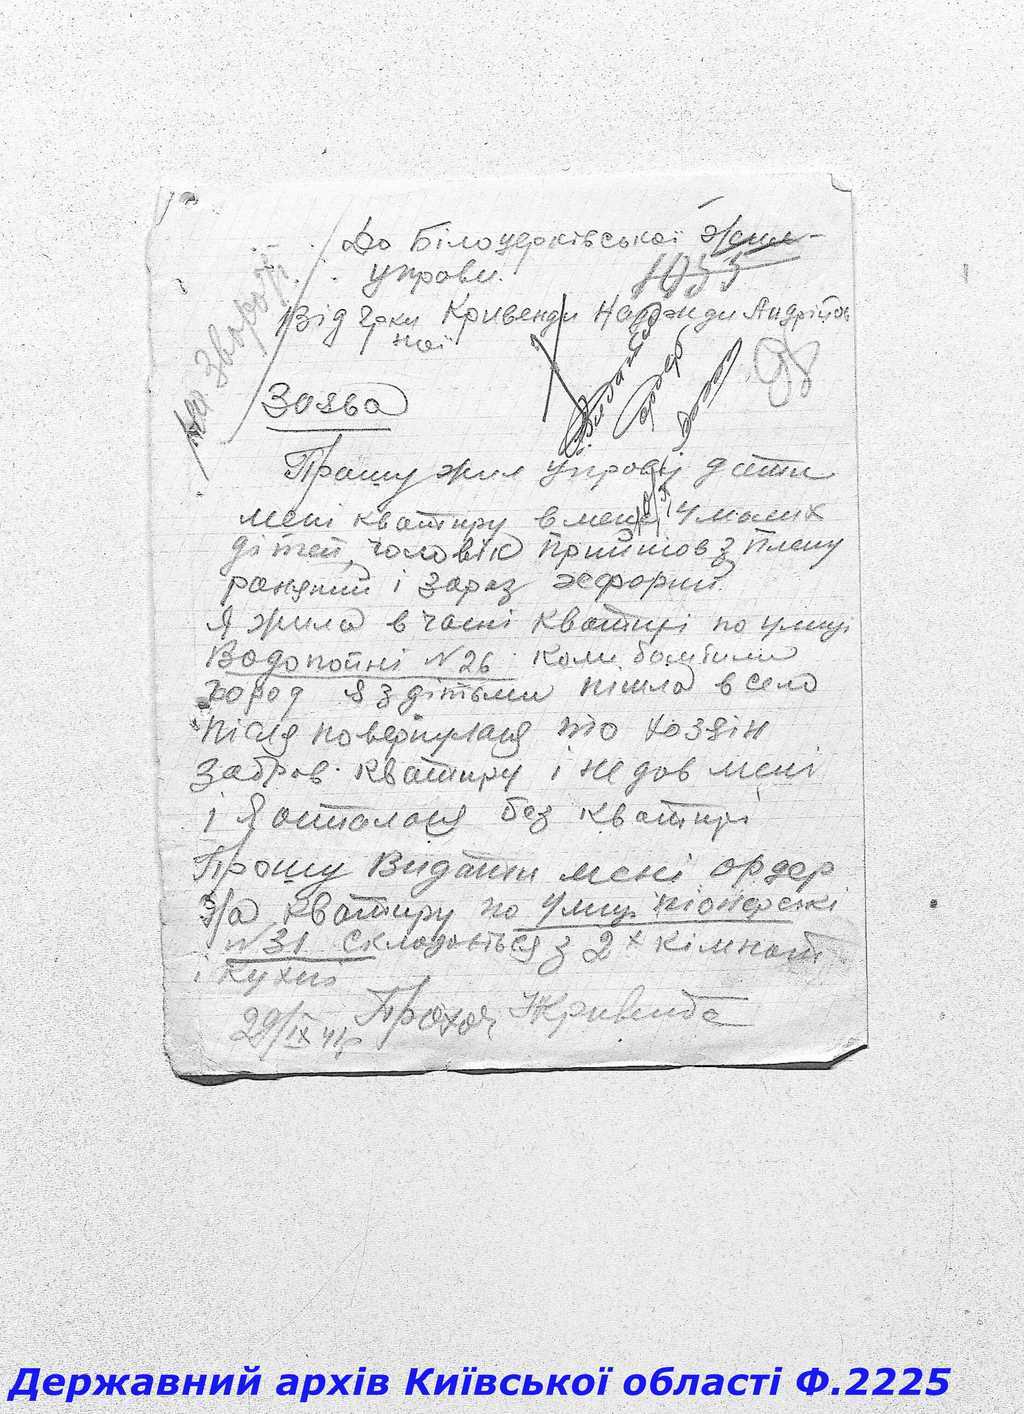 До Білоцерківської Жил-
управи.
1055
Від гр-ки Кривенди Надежди Андріїов
ної
на звороті
98
Заява
Прошу жил управу дати
мені квартиру в мене 4 малих
дітей, чоловік прийшов з плену
раняний і зараз хворий
Я жила в часні квартирі по улиці
Водопойні №26 коли бомбили
город я з дітьми пішла в село
після повернулася то хозяін
забрав квартиру і не дав мені
і я осталася без квартирі
Прошу Видати мені ордер
на квартиру по улиц піонерські
№31 складається з 2х кімнат
і кухні
29/IX 41р Прохач Кривенда
Державний архів Київської області Ф.2225